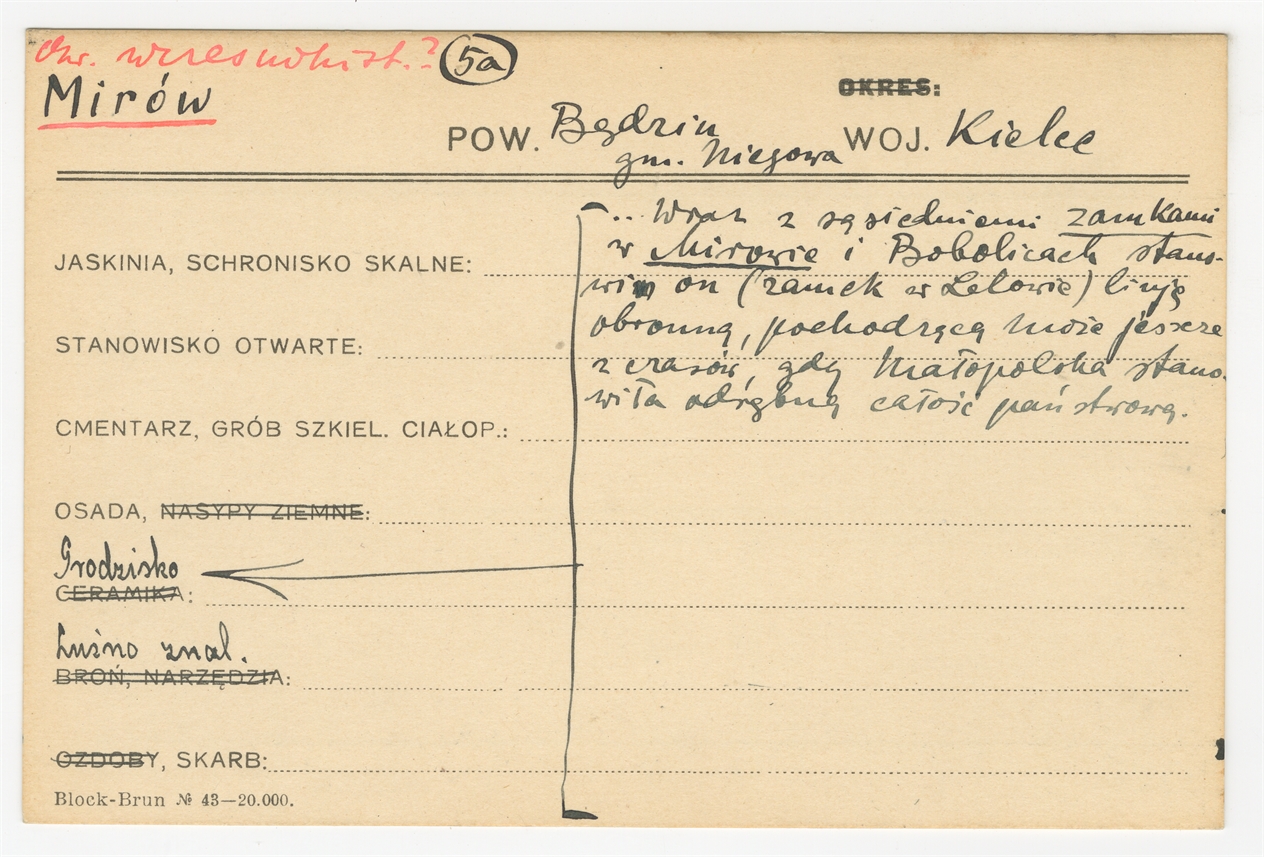 Okr. wczesnohist.? 5a
Mirów
OKRES:
POW. Będzin WOJ. Kielce
gm. Niegowa
... Wraz z sąsiedniemi zamkami
w Mirowie i Bobolicach stano-
JASKINIA, SCHRONISKO SKALNE:
wi on (zamek w Lelowie) linję
obronną, pochodzącą może jeszcze
STANOWISKO OTWARTE:
z czasów, gdy Małopolska stano-
wiła odrębną całość państwową.
CMENTARZ, GRÓB SZKIEL. CIAŁOP.:
OSADA, NASYPY ZIEMNE:
Grodzisko
CERAMIKA:
Luźno znal.
BROŃ, NARZĘDZIA:
OZDOBY, SKARB:
Block-Brun № 43—20.000.